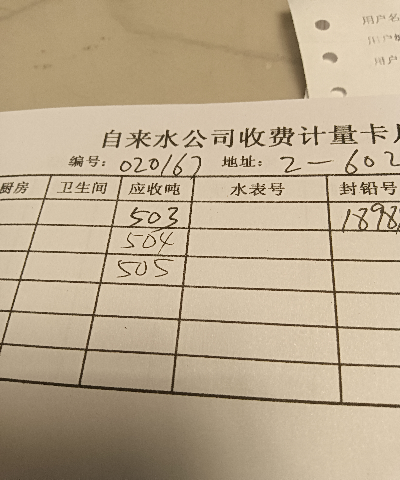 用户名
用户
自来水公司收费计量卡
编号: 020167 地址: 2-602
厨房 卫生间 应收吨 水表号 封铅号
503 1898
504
505